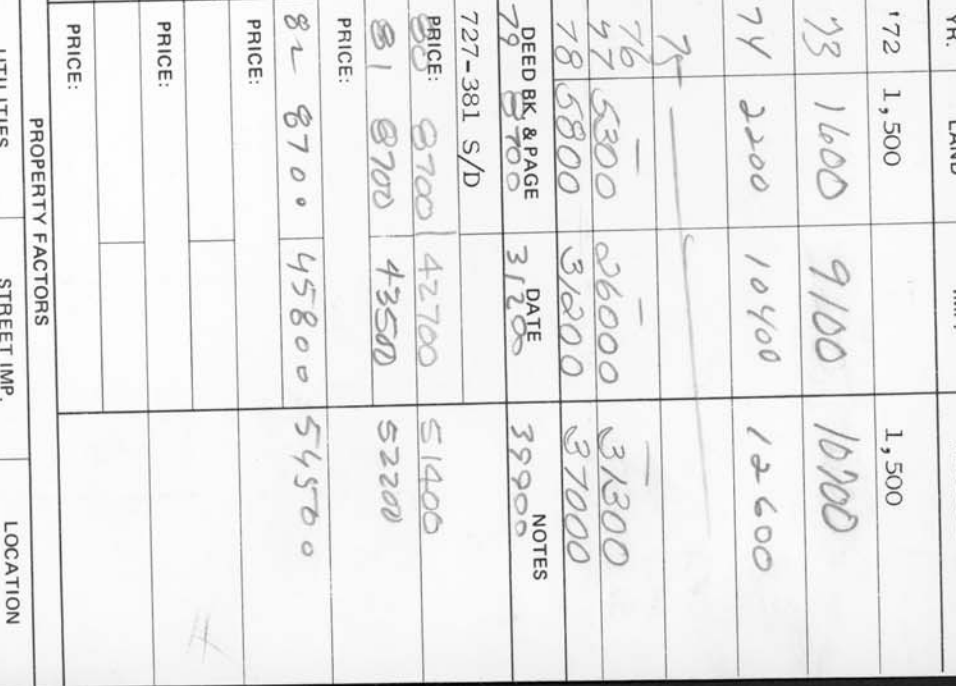 YR. LAND
'72 1,500 1,500
73 1600 9100 10700
74 2200 10400 12600
75
76 — — —
77 5300 26000 31300
78 5800 31200 37000
DEED BK. & PAGE DATE NOTES
79 8700 31200 39900
727-381 S/D
PRICE:
80 8700 42700 51400
81 8700 43500 52200
PRICE:
82 8700 45800 54500
PRICE:
PRICE:
PRICE:
PROPERTY FACTORS
UTILITIES STREET IMP. LOCATION